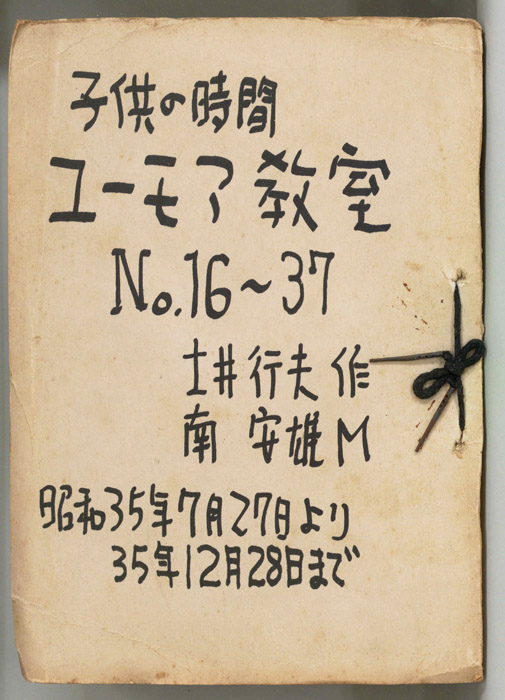 子供の時間
ユーモア教室
No.16～37
土井行夫 作
南 安雄 M
昭和35年7月27日より
35年12月28日まで